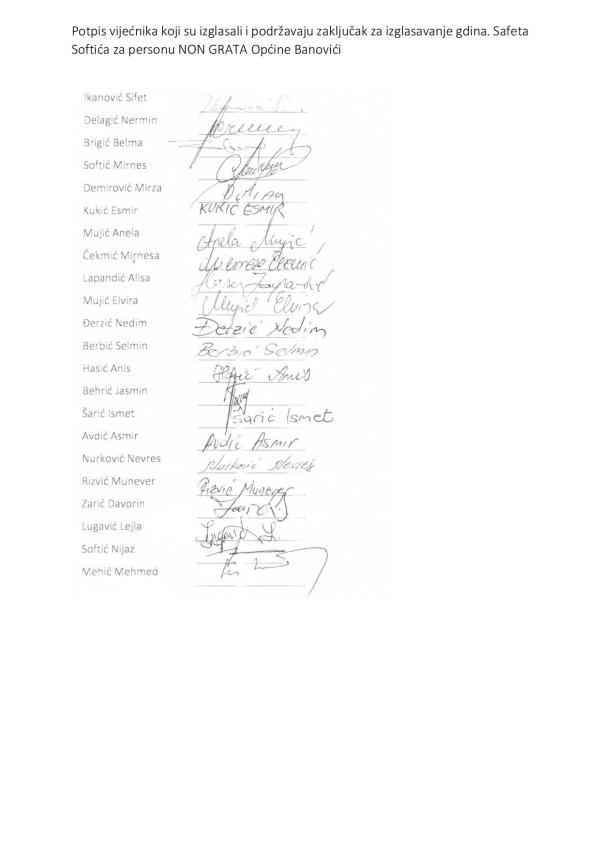 Potpis vijećnika koji su izglasali i podržavaju zaključak za izglasavanje gdina. Safeta
Softića za personu NON GRATA Općine Banovići
Ikanović Sifet
Delagić Nermin
Brigić Belma
Softić Mirnes
Demirović Mirza
Kukić Esmir KUKIĆ ESMIR
Mujić Anela Anela Mujić
Čekmić Mirnesa
Lapandić Alisa
Mujić Elvira Mujić Elvira
Đerzić Nedim Đerzić Nedim
Berbić Selmin Berbić Selmin
Hasić Anis Hasić Anis
Behrić Jasmin
Šarić Ismet Šarić Ismet
Avdić Asmir Avdić ASMIR
Nurković Nevres Nurković Nevres
Rizvić Munever Rizvić Munever
Zarić Davorin
Lugavić Lejla Lugavić L.
Softić Nijaz
Mehić Mehmed